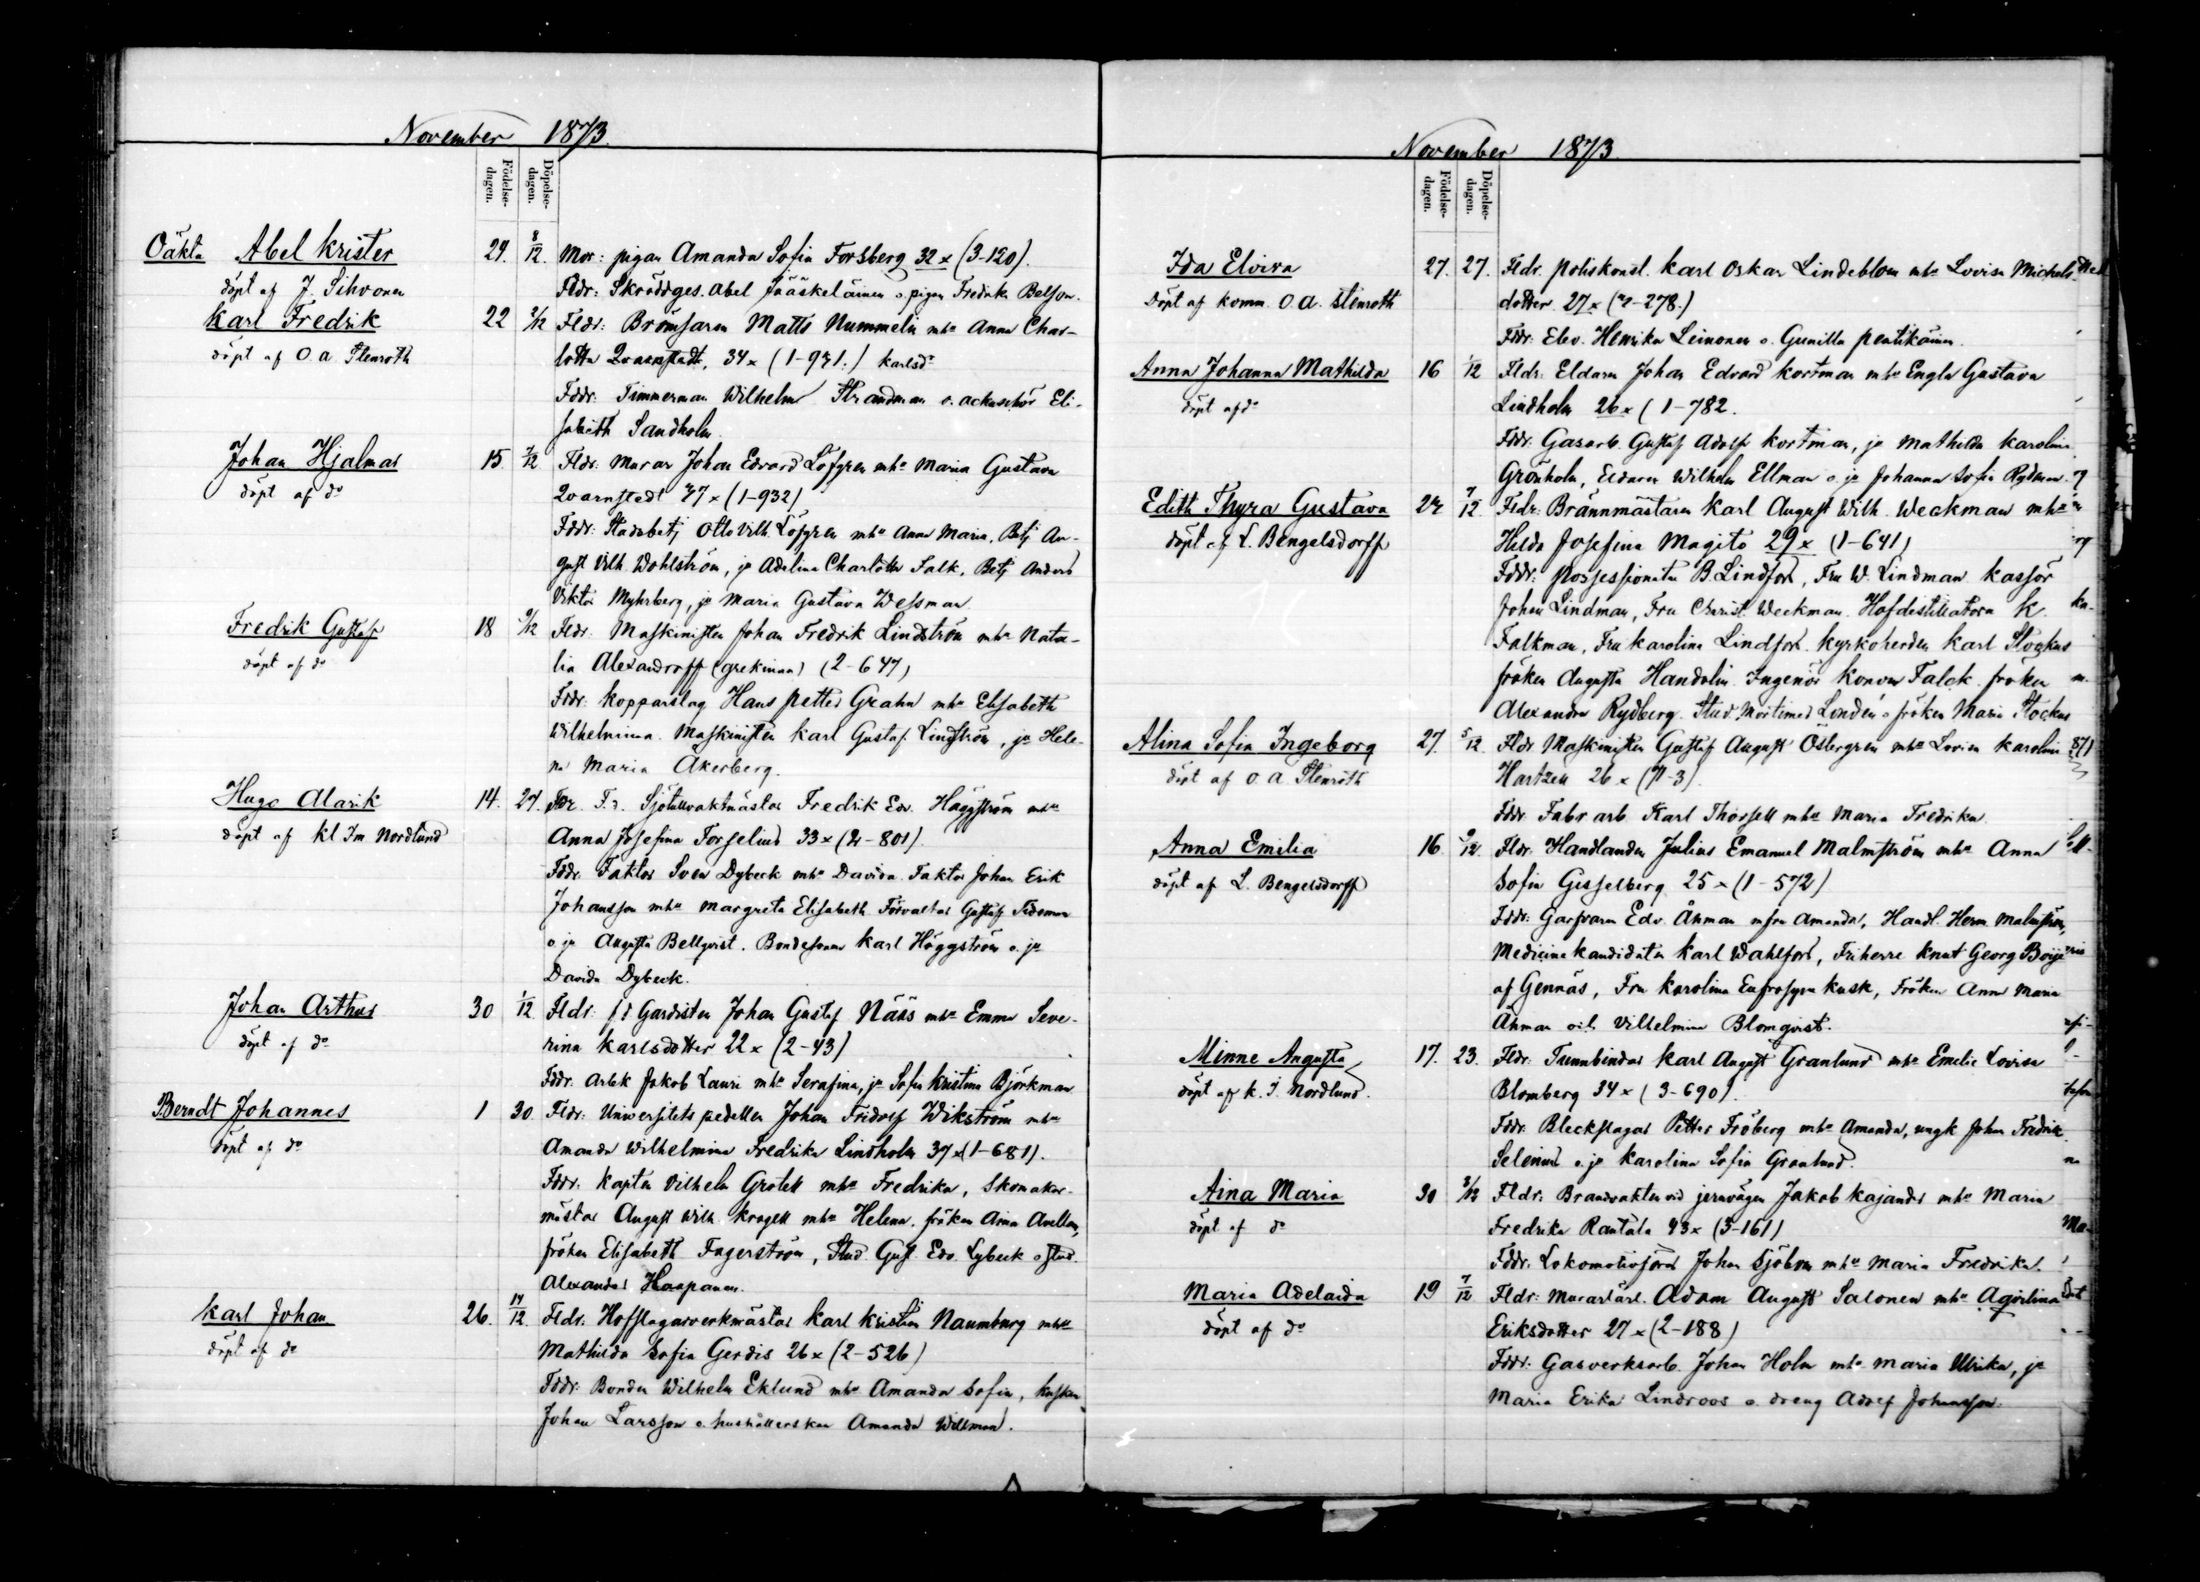 November 1873.
Födelse-dagen.
Döpelse-dagen.
Oäkta Abel Krister 24. 8/12 Mor: pigan Amanda Sofia Forsberg 32 x (3-120).
döpt af J. Sihvonen Fddr: Skräddges. Abel Jääskeläinen o. pigan Fredrika
Karl Fredrik 22 2/12 Fldr: Matts Nummelin mha Anna Char-
döpt af O. A. Stenroth lotta Qvarnstedt, 34 x (1-971.) Karlsd.
Fddr: Timmerman Wilhelm Strandman o. Eli-
sabeth Sandholm
Johan Hjalmar 15. 7/12 Fldr: Murar Johan Edvard Löfgren mha Maria Gustava
döpt af do Qvarnstedt 37 x (1-932)
Fddr: Stadsbetj Otto Vilh. Löfgren mha Anna Maria, Betj Au-
gust Vilh. Wahlström, jo Adelina Charlotta Falk, Betj Anders
Viktor Myhrberg, jo Maria Gustava Wessman
Fredrik Gustaf 18 9/12 Fldr: Maskinisten Johan Fredrik Lindström mha Nata-
döpt af do lia Alexandroff (grekinna) (2-647)
Fddr: Kopparslag Hans Petter Grahn mha Elisabeth
Wilhelmina. Maskinisten Karl Gustaf Lindström, jo Hele-
na Maria Åkerberg.
Hugo Alarik 14. 27. Sjötullvaktmästar Fredrik Edv. Häggström mha
döpt af Kl Im Nordlund Anna Josefina Forselius 33 x (2-801).
Fddr: Faktor Sven Dybeck mha Davida. Faktor Johan Erik
Johansson mha Margreta Elisabeth. Förvaltar Gustaf Tideman
o. jo Augusta Bellqvist. Bondesonen Karl Häggström o. jo
Davida Dybeck.
Johan Arthur 30 1/12 Fldr: f d Gardisten Johan Gustaf Nääs mha Emma Seve-
döpt af do rina Karlsdotter 22 x (2-43)
Fddr. Arbk Jakob Lauri mha Serafina, jo Sofia Kristina Björkman
Berndt Johannes 1 30 Fldr: Universitetspedellen Johan Fridolf Wikström mha
döpt af do Amanda Wilhelmina Fredrika Lindholm 37 x (1-681).
Fddr: Kapten Vilhelm Grotell mha Fredrika, Skomakar-
mästar August Wilh. Krogell mha Helena. fröken Aina Avellan,
fröken Elisabeth Fagerström, Stud. Gust. Edv. Lybeck o Stud.
Alexander Haapanen.
Karl Johan 26. 14/12 Fldr. Hofslagarverkmästar Karl Kristian Naumburg mha
döpt af do Mathilda Sofia Gerdis 26 x (2-526)
Fddr: Bonden Wilhelm Eklund mha Amanda Sofia, kusken
Johan Larsson o. hushållerskan Amanda Willman.
November 1873.
Födelse-dagen.
Döpelse-dagen.
Ida Elvira 27. 27. Fldr. poliskonst. Karl Oskar Lindeblom mha Lovisa Michels-
döpt af komm. O. A. Stenroth dotter 27 x (2-278.)
Fddr: Elev. Henrika Leinonen o. Gunilla Pentikäinen.
Anna Johanna Mathilda 16 1/12 Fldr: Eldaren Johan Edvard Kortman mha Engla Gustava
döpt af do Lindholm 26 x (1-782.
Fddr. Gasarb. Gustaf Adolf Kortman, jo Mathilda Karolina
Grönholm, Eldaren Wilhelm Ellman o. jo Johanna Sofia Rydman.
Edith Thyra Gustava 22 7/12 Fldr: Brännmästaren Karl August Wilh. Weckman mha
döpt af L. Bengelsdorff Hilda Josefina Magito 29 x (1-641)
Fddr: possessionaten B. Lindfors, Fru W. Lindman. Kassör
Johan Lindman, Fru Christ. Weckman. Hofdestillatorn K.
Falkman, Fru Karolina Lindfors. Kyrkoherden Karl Stockus
fröken Augusta Handolin. Ingenör Falck. fröken
Alexandra Rydberg. Stud. Mortimer Londén o fröken Maria Stockus
Alina Sofia Ingeborg 27. 5/12 Fldr Maskinisten Gustaf August Östergren mha Lovisa Karolina
döpt af O. A. Stenroth Hartzell 26 x (71-3).
Fddr. Fabr arb. Karl Thorsell mha Maria Fredrika.
Anna Emilia 16. 9/12. Fldr. Handlanden Julius Emanuel Malmström mha Anna
döpt af L. Bengelsdorff Sofia Gesselberg 25 x (1-572)
Fddr: Garfvaren Edv. Åhman m fru Amanda, Handl. Herm. Malmström,
Medicinekandidaten Karl Wahlfors, Friherre Knut Georg Boije
af Gennäs, Fru Karolina Eufrosyne Kusk, Fröken Anna Maria
Åhman och Vilhelmina Blomqvist.
Minne Augusta 17. 23. Fldr: Tunnbindar Karl August Granlund mha Emelie Lovisa
döpt af K. I. Nordlund. Blomberg 34 x (3-690).
Fddr. Bleckslagar Petter Fröberg mha Amanda, ungk Johan Fredrik
Selenius o. jo Karolina Sofia Granlund.
Aina Maria 30 3/12 Fldr: Brandvakten vid jernvägen Jakob Kajander mha Maria
döpt af do Fredrika Rantala 43 x (3-161)
Fddr. Lokomotivförar Johan Sjöblom mha Maria Fredrika.
Maria Adelaida 19 7/12 Fldr: Murarlärl. Adam August Salonen mha
döpt af do Eriksdotter 27 x (2-188)
Fddr: Gasverksarb. Johan Holm mha Maria Ulrika, jo
Maria Erika Lindroos o. dräng Adolf Johansson.